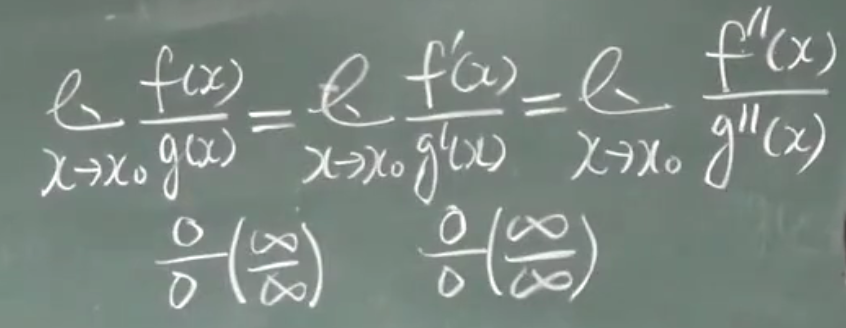 lim_{x→x₀} f(x)/g(x) = lim_{x→x₀} f'(x)/g'(x) = lim_{x→x₀} f''(x)/g''(x)
0/0 (∞/∞) 0/0 (∞/∞)